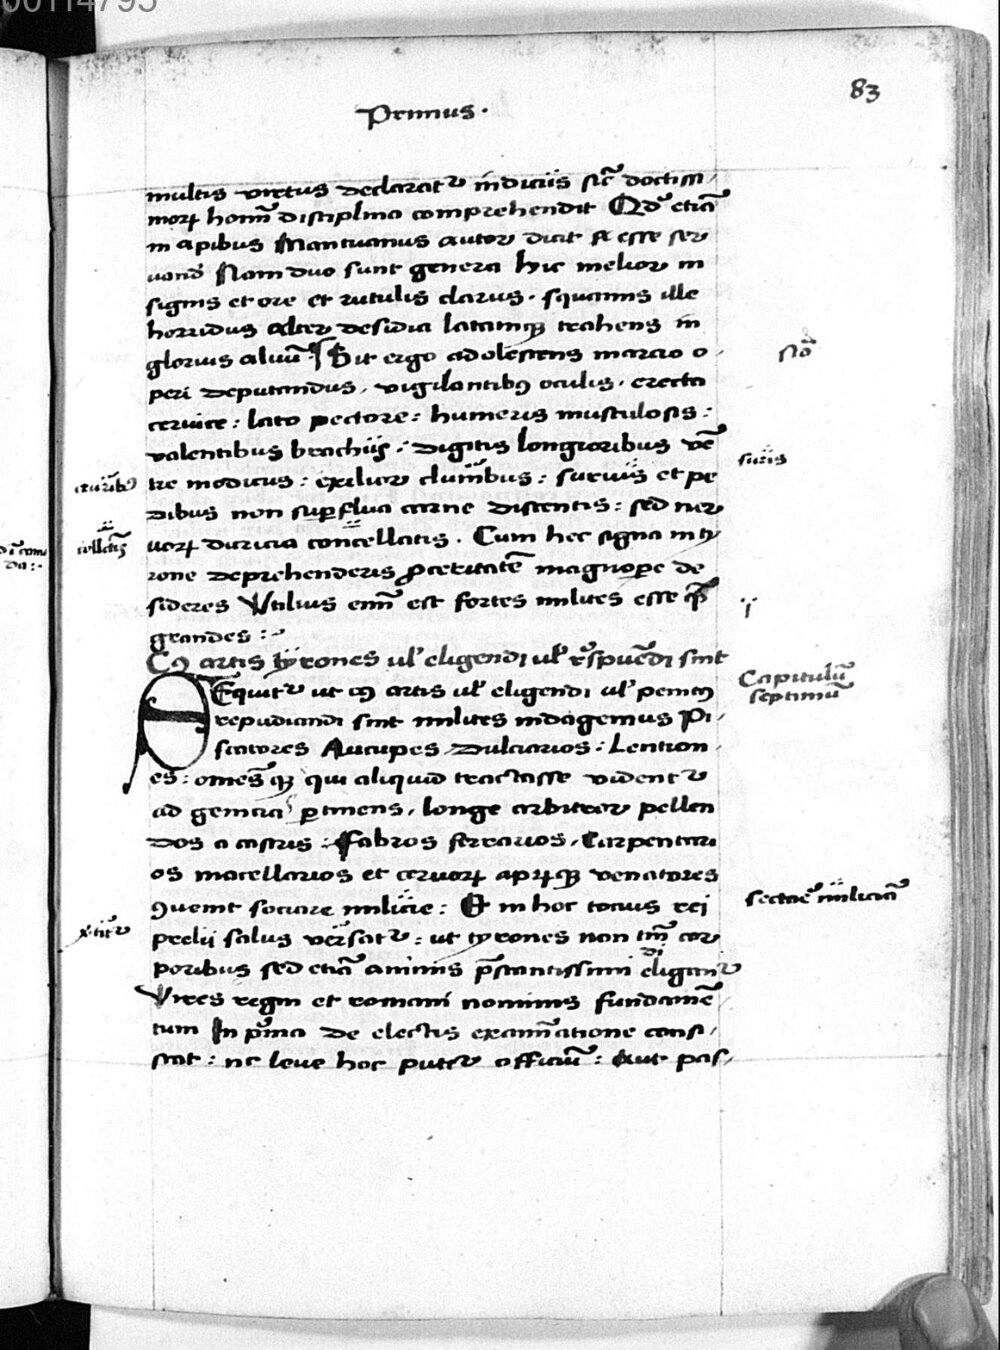 00114795
83
Primus.
multis virtus declarat᷑ indiciis sic̄ doctissi/
moꝝ homī disciplina comprehendit Qd̓ etiā
in apibus Mantuanus autor dicit sē esse ser
uand̓ Nam duo sunt genera hic melior in
signis et ore et rutulis clarus. squamis ille
horridus Alter desidia latamqꝫ trahens in
glorius aluū. Sit ergo adolescens marcio o/
peri deputandus, vigilantibꝰ oculis, erecta
ceruice: lato pectore: humeris musculosis:
valentibus brachiis: digitis longioribus vē
tre modicus: exilior clunibus: suruiis et pe
dibus non suꝑflua carne distentis: sed ner
uoꝝ duricia concellatis. Cum hec signa in ty
rone deprehenderis ꝓceritatē magnoꝑe de
sideres Vtilius enī est fortes milites esse qꝫ̄
grandes:
Cꝰ artis tyrones ul̓ eligendi ul̓ respuēdi sint
SEquit᷑ ut cꝰ artis ul̓ eligendi ul̓ penitꝰ
repudiandi sint milites indagemus Pi/
scatores Aucupes Dulciarios: Lention/
es: omesqꝫ qui aliquid tractasse vident᷑
ad genicia ꝑtinens, longe arbitror pellen
dos a castris: Fabros ferrarios, Carpentari
os macellarios et ceruoꝝ aprꝝqꝫ venatores
ꝯuenit sociare milicie: Et in hoc tocius rei
prelii salus versat᷑: ut tyrones non tm̄ cor
poribus sed etiā animis p̄stantissimi eligan᷑
di
Vires regni et romani nominis fundamē
tum In prima de electus examinatione consi/
stat: nc leue hoc putet officiū: Aut pas/
suris
Capitulū
septimū
sectaꝫ miliciā
cruribꝰ
collectis